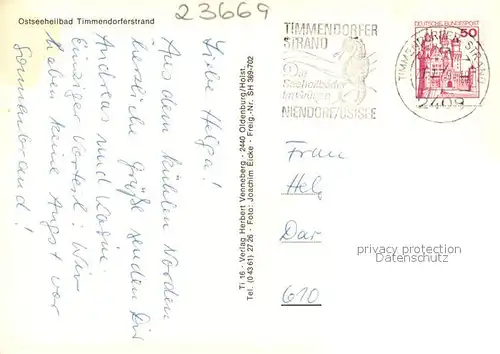 23669
Ostseeheilbad Timmendorferstrand
Liebe Helga!
Aus dem kühlen Norden
herzliche Grüße senden Dir
Andreas und
Einziger Vorteil: Wir
haben keine Angst vor
Sonnenbrand!
Ti 16 - Verlag Herbert Venneberg - 2440 Oldenburg/Holst.
Tel. (04361) 2726 - Foto: Joachim Eicke - Freig.-Nr. SH 369-702
TIMMENDORFER
STRAND
Die
Seeheilbäder
NIENDORF/OSTSEE
DEUTSCHE BUNDESPOST
50
TIMMENDORFER STRAND
2409
Frau
Hel
Dar
610
privacy protection
watermark